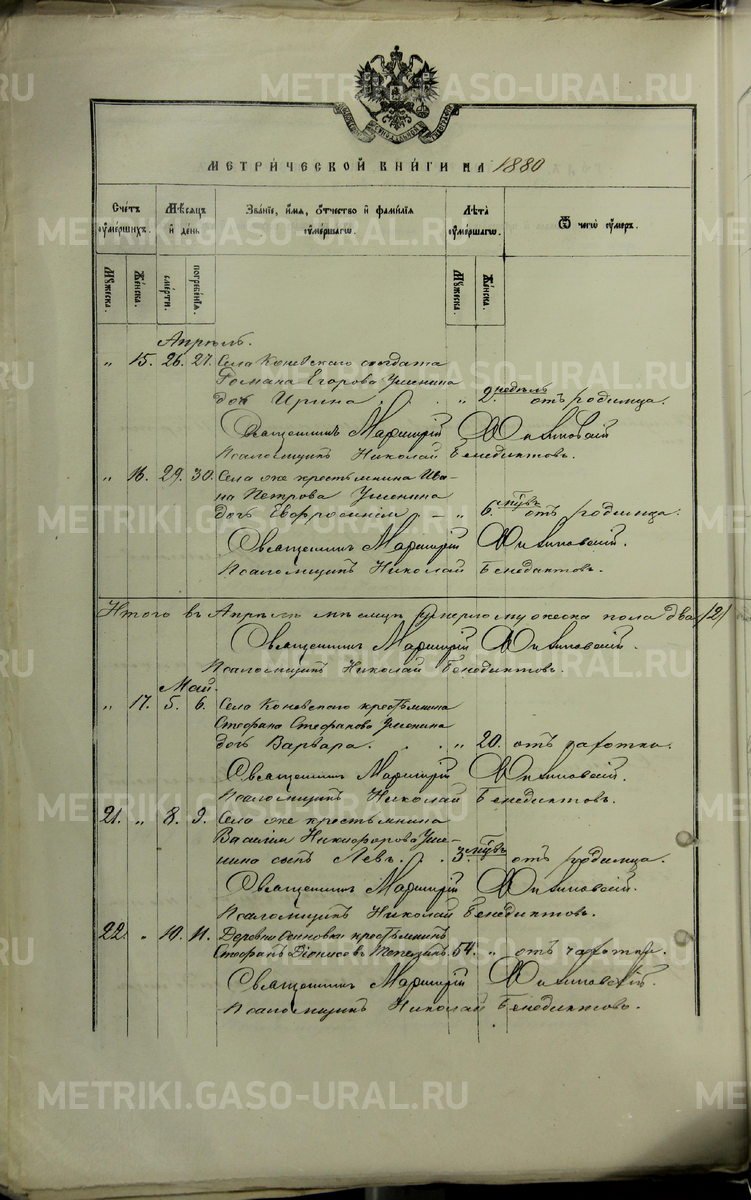 МЕТРИЧЕСКОЙ КНИГИ НА 1880
Счетъ умершихъ.
Мѣсяцъ и день
Званіе, имя, отчество и фамилія умершаго.
Лѣта умершаго.
Отъ чего умеръ.
Мужеска.
Женска.
смерти.
погребенія.
Мужеска.
Женска.
Апрѣль.
" 15. 26. 27. Села Коневскаго солдата
Романа Егорова Уженина
дочь Ирина . . . " 2. недѣль отъ родимца.
Священникъ Маркирій
Псаломщикъ Николай Бенедиктовъ.
" 16. 29. 30. Села тоже крестьянина Ива-
на Петрова Уженина
дочь Евфросинія " 6. мцвъ отъ родимца.
Священникъ
Псаломщикъ Николай Бенедиктовъ.
Итого въ Апрѣлѣ мѣсяцѣ умерло мужеска пола два /2/
Священникъ
Псаломщикъ Николай Бенедиктовъ.
Май.
" 17. 5. 6. Села Коневскаго крестьянина
Стефана Стефанова Уженина
дочь Варвара . . . " 20. отъ чахотки.
Священникъ
Псаломщикъ Николай Бенедиктовъ.
21. " 8. 9. Села тоже крестьянина
Василія Никифорова Уже-
нина сынъ Левъ . . 3. мцвъ отъ родимца.
Священникъ
Псаломщикъ Николай Бенедиктовъ.
22. " 10. 11. Деревни Осиновки крестьянинъ
Стефанъ Діонисовъ 54. " отъ чахотки.
Священникъ
Псаломщикъ Николай Бенедиктовъ.
METRIKI.GASO-URAL.RU